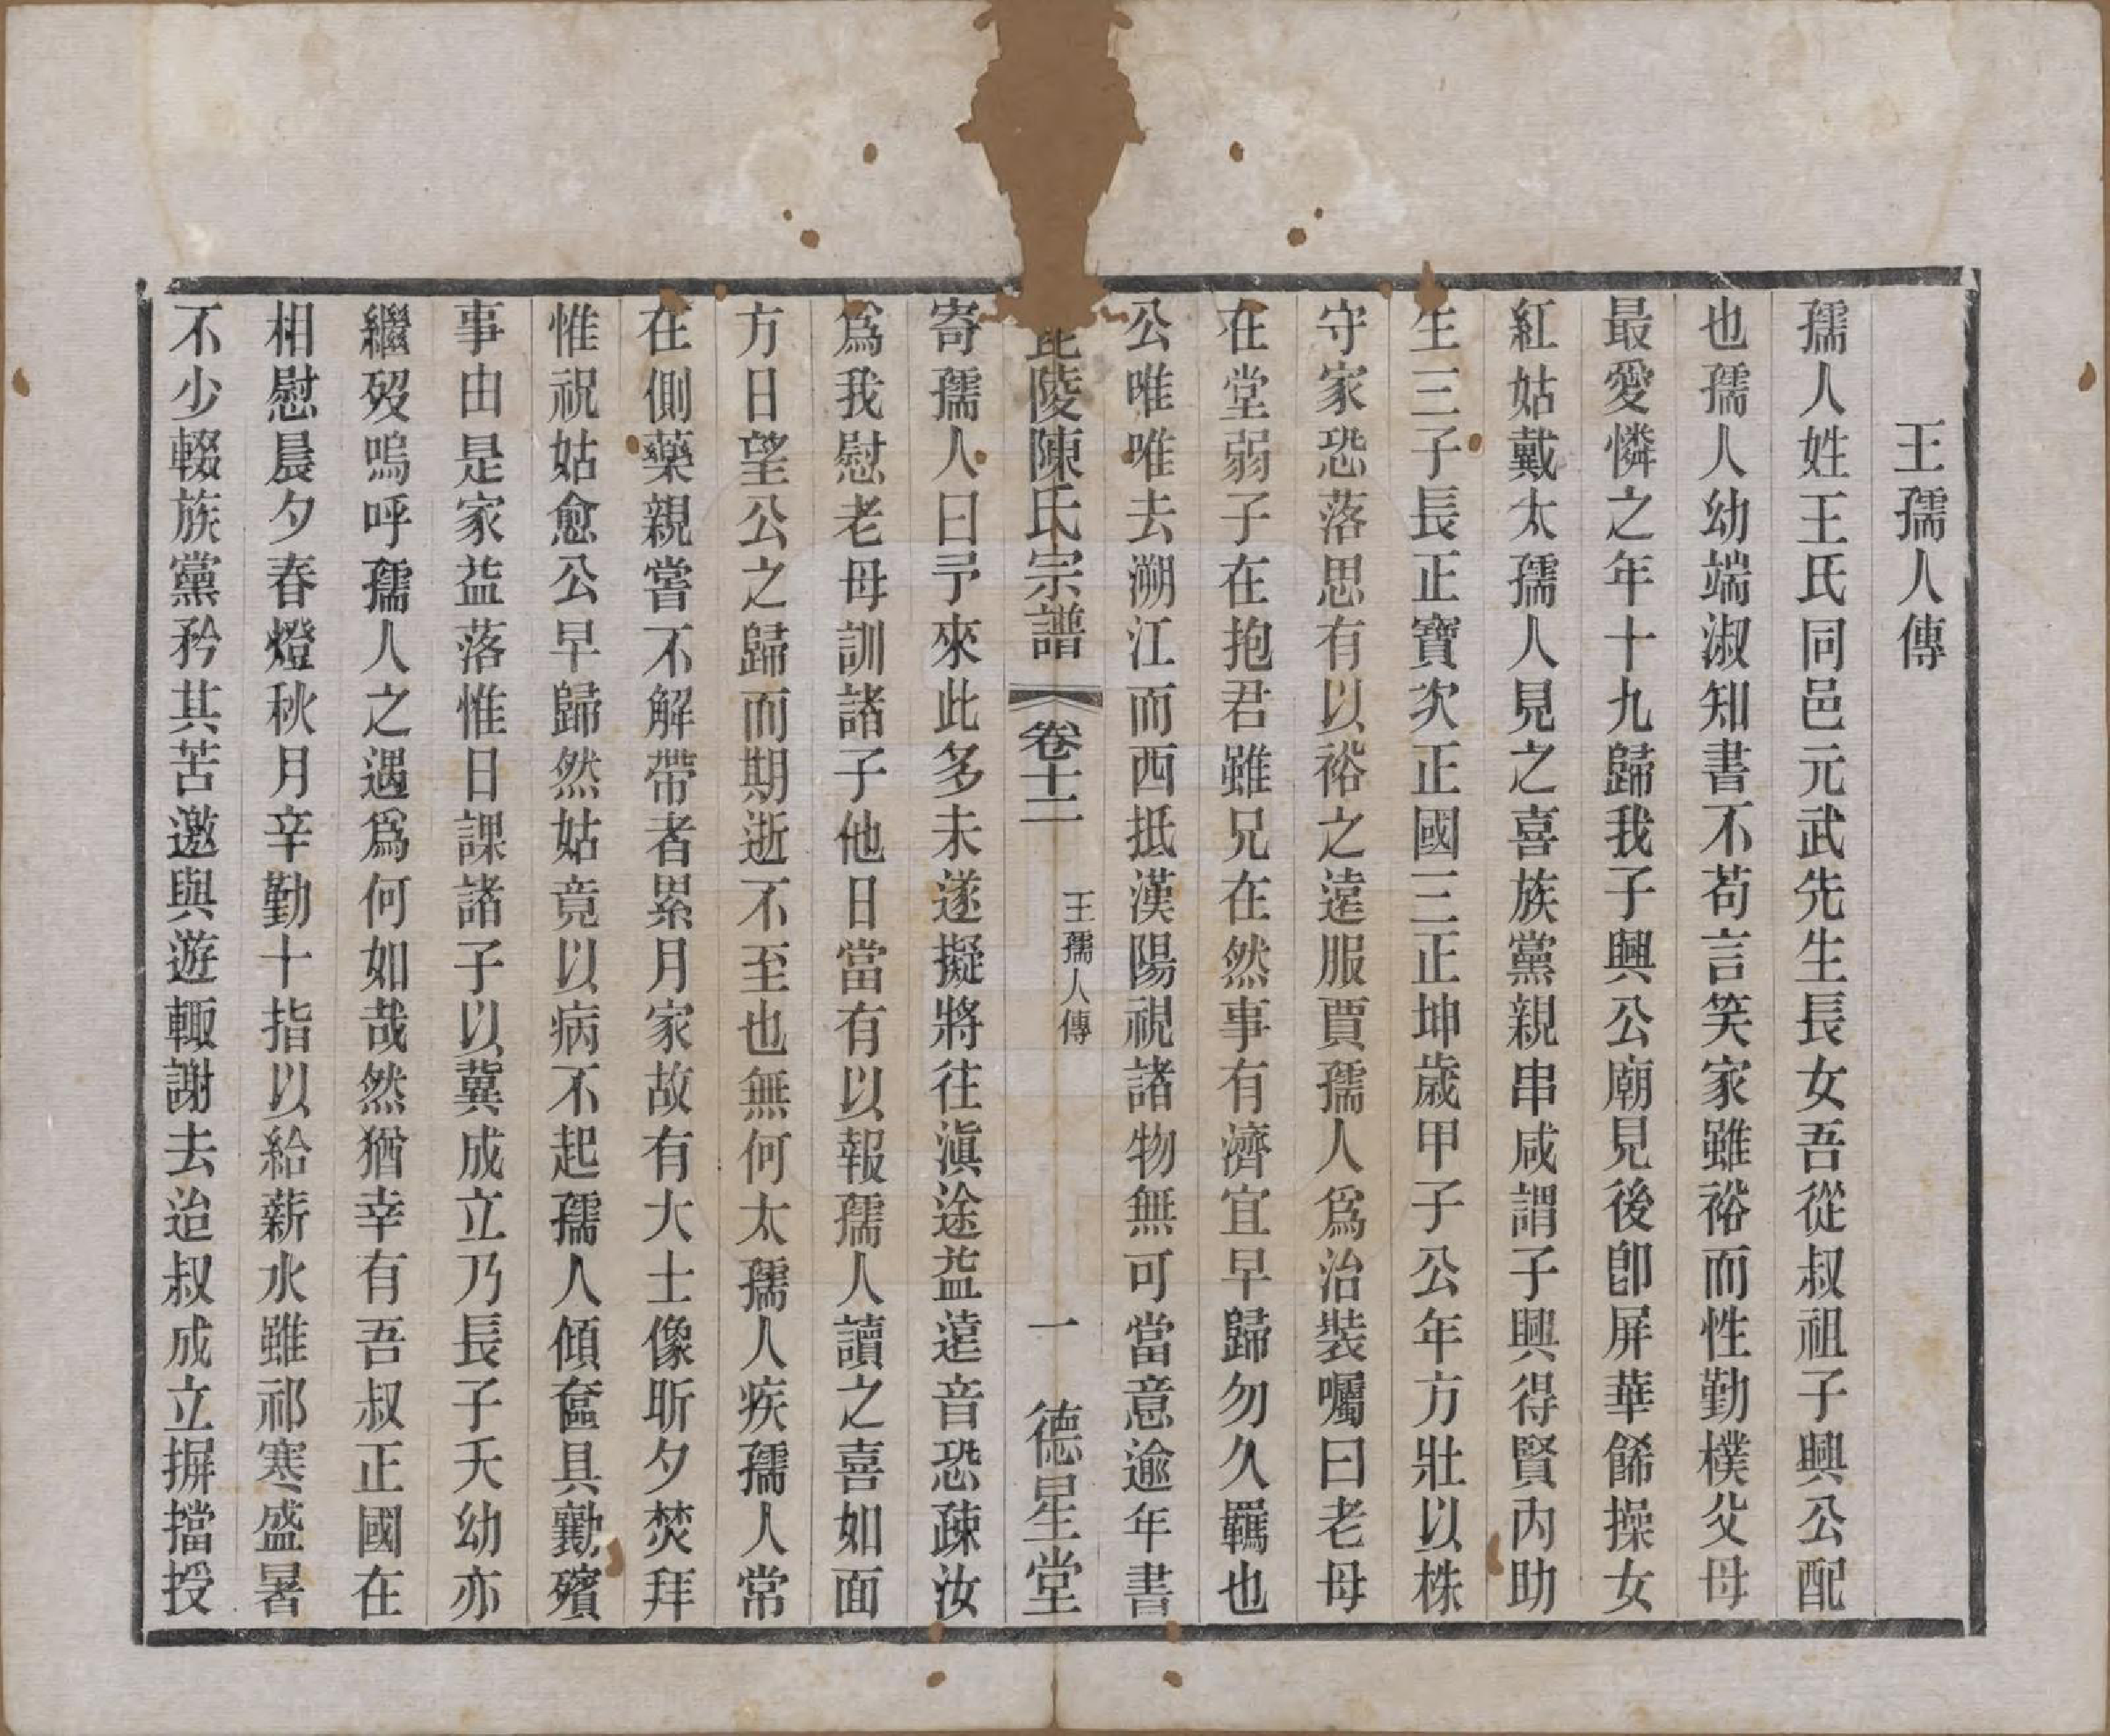 王孺人傳
孺人姓王氏同邑元武先生長女吾從叔祖子興公配
也孺人幼端淑知書不苟言笑家雖裕而性勤樸父母
最愛憐之年十九歸我子興公廟見後卽屏華餙操女
紅姑戴太孺人見之喜族黨親串咸謂子興得賢内助
生三子長正寶次正國三正坤歲甲子公年方壯以株
守家恐落思有以裕之遠服賈孺人爲治裝囑曰老母
在堂弱子在抱君雖兄在然事有濟宜早歸勿久羈也
公唯唯去溯江而西抵漢陽視諸物無可當意逾年書
毘陵陳氏宗譜 卷十二 王孺人傳 一 德星堂
寄孺人曰予來此多未遂擬將往滇途益遠音恐疎汝
爲我慰老母訓諸子他日當有以報孺人讀之喜如面
方日望公之歸而期逝不至也無何太孺人疾孺人常
在側藥親嘗不解帶者累月家故有大士像昕夕焚拜
惟祝姑愈公早歸然姑竟以病不起孺人傾奩具勷殯
事由是家益落惟日課諸子以冀成立乃長子夭幼亦
繼歿嗚呼孺人之遇爲何如哉然猶幸有吾叔正國在
相慰晨夕春燈秋月辛勤十指以給薪水雖祁寒盛暑
不少輟族黨矜其苦邀與遊輙謝去迨叔成立摒擋授